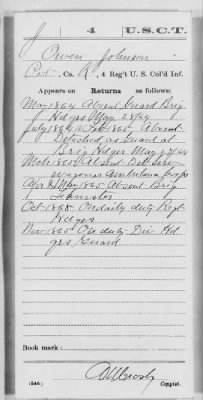 J 4 U.S.C.T.
Owen Johnson
Pvt, Co. K, 4 Reg't U. S. Col'd Inf.
Appears on Returns as follows:
May 1864 Absent Guard Brig
Hdqrs May 28/64
July 1864 to Feb 1865 Absent
Detached as Guard at
Brig Hdqrs. May 27/64
Mch 1865 Absent Det Serv
wagoner Ambulance Corps
Apr & May 1865 Absent Brig
Teamster
Oct 1865 On daily duty Regt
Hdqrs
Nov 1865 On duty Div Hd
qrs Guard
Book mark:
(546) Copyist.